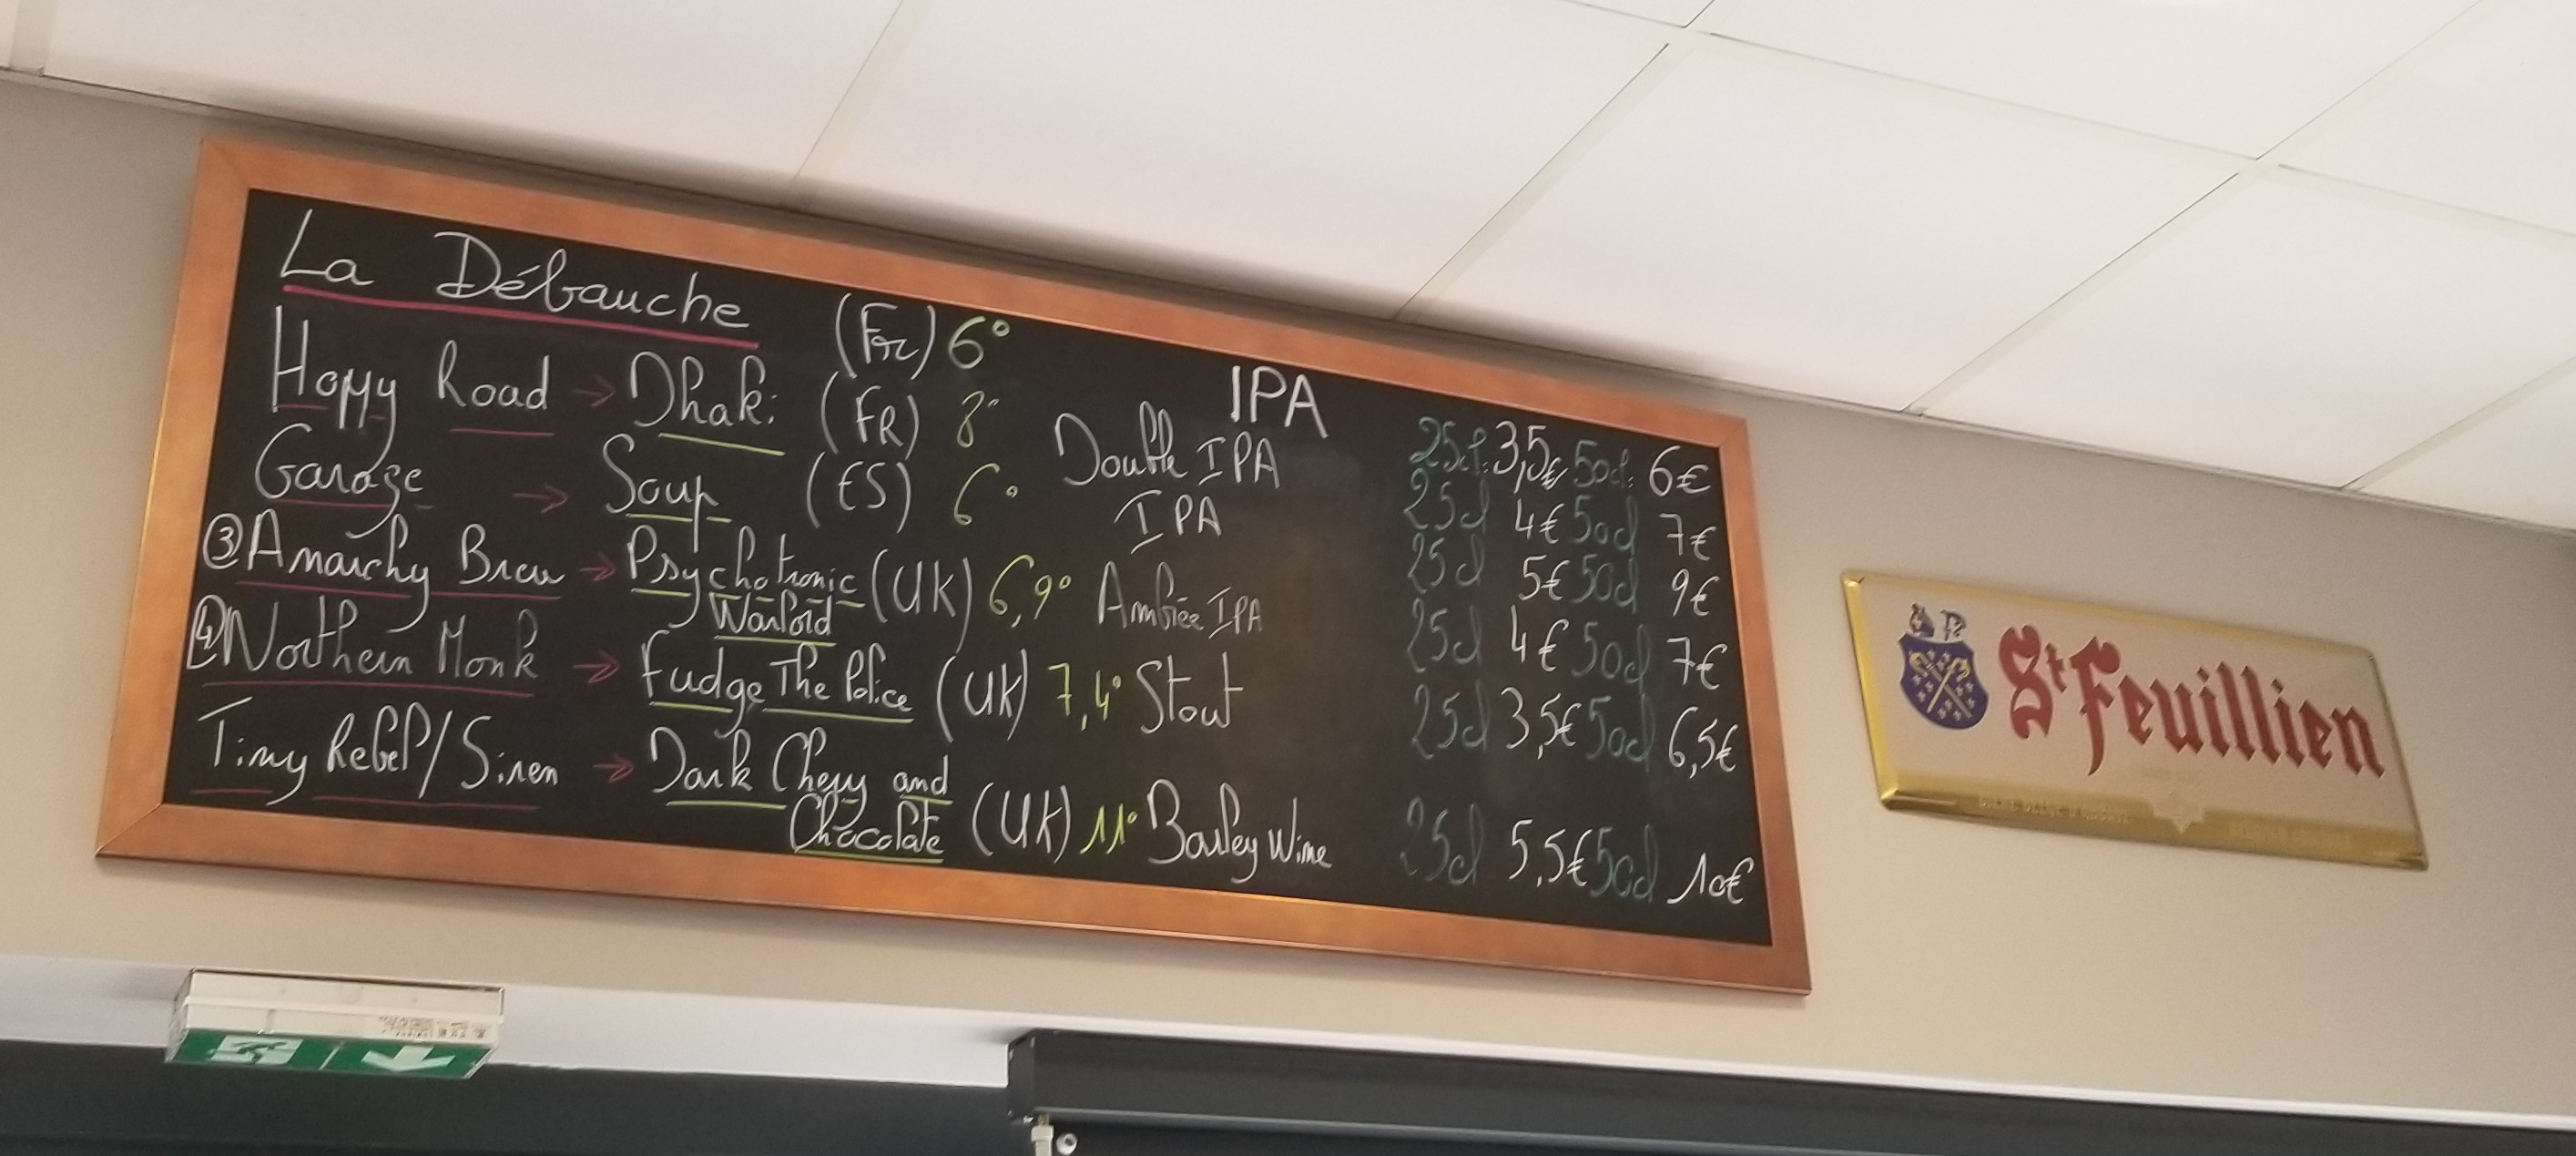 La Débauche (Fr) 6° IPA 25cl: 3,5€ 50cl: 6€
Hoppy Road → Dhaki (FR) 8° Double IPA 25cl 4€ 50cl 7€
Garage → Soup (ES) 6° IPA 25cl 5€ 50cl 9€
③ Anarchy Brew → Psychotronic (UK) 6,9° Ambrée IPA 25cl 4€ 50cl 7€
Warlord
④ Northern Monk → Fudge The Police (UK) 7,4° Stout 25cl 3,5€ 50cl 6,5€
Tiny Rebel/Siren → Dark Chery and
Chocolate (UK) 11° Barley Wine 25cl 5,5€ 50cl 10€
St Feuillien